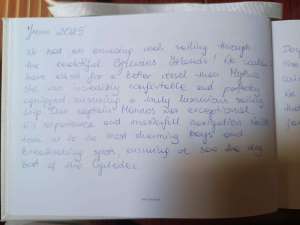 June 2025
We had an amazing week sailing through
the beautiful Cyclades Islands! We couldn't
have asked for a better vessel than
She was incredibly comfortable and perfectly
equipped ensuring a truly luxurious sailing
trip. Our captain Manos was exceptional
his experience and masterful navigation
took us to the most charming bays and
breathtaking spots, ensuring we saw the very
best of the Cyclades.